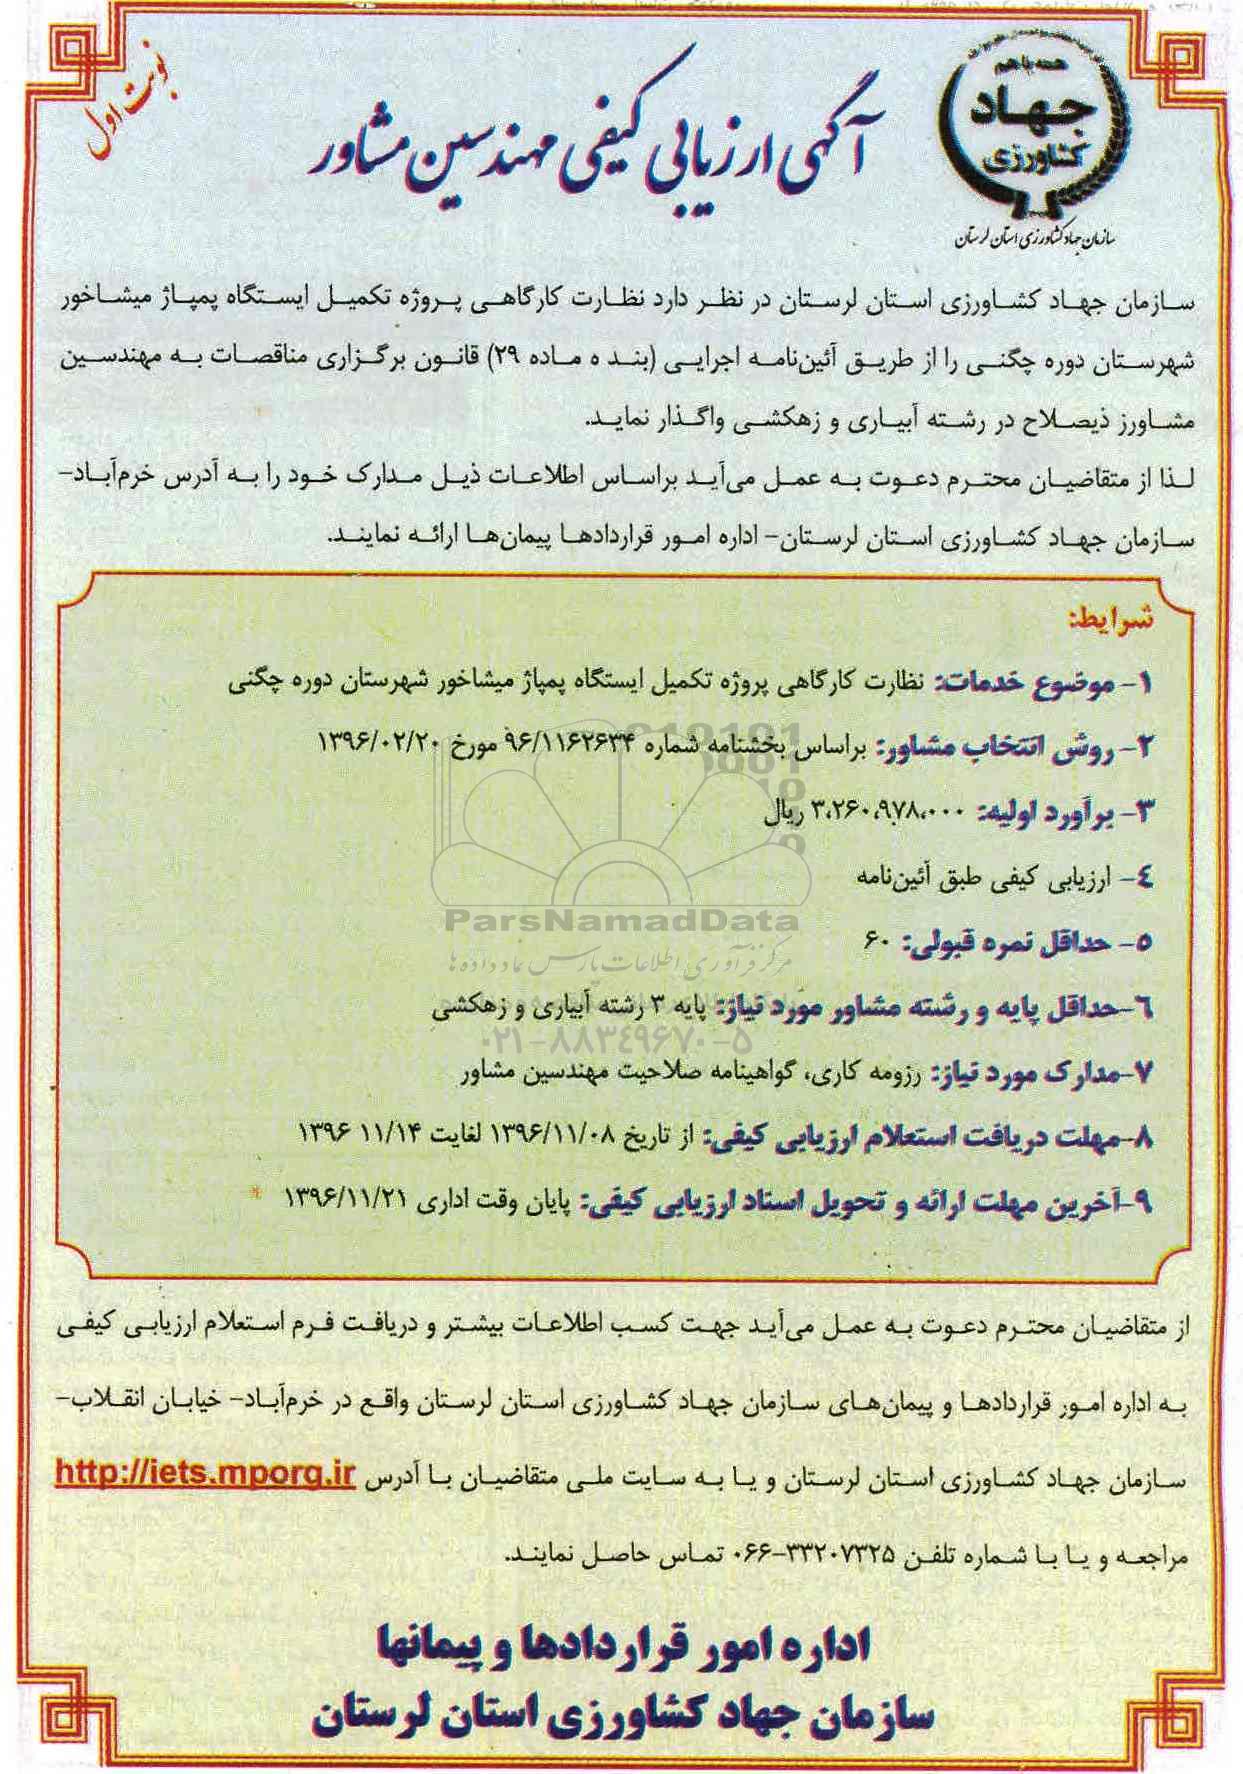 همه با هم
جهاد
کشاورزی
سازمان جهاد کشاورزی استان لرستان
نوبت اول
آگهی ارزیابی کیفی مهندسین مشاور
سازمان جهاد کشاورزی استان لرستان در نظر دارد نظارت کارگاهی پروژه تکمیل ایستگاه پمپاژ میشاخور
شهرستان دوره چگنی را از طریق آئین‌نامه اجرایی (بند ه ماده ۲۹) قانون برگزاری مناقصات به مهندسین
مشاورز ذیصلاح در رشته آبیاری و زهکشی واگذار نماید.
لذا از متقاضیان محترم دعوت به عمل می‌آید براساس اطلاعات ذیل مدارک خود را به آدرس خرم‌آباد-
سازمان جهاد کشاورزی استان لرستان- اداره امور قراردادها پیمان‌ها ارائه نمایند.
شرایط:
۱- موضوع خدمات: نظارت کارگاهی پروژه تکمیل ایستگاه پمپاژ میشاخور شهرستان دوره چگنی
۲- روش انتخاب مشاور: براساس بخشنامه شماره ۹۶/۱۱۶۲۶۳۴ مورخ ۱۳۹۶/۰۲/۲۰
۳- برآورد اولیه: ۳،۲۶۰،۹۷۸،۰۰۰ ریال
٤- ارزیابی کیفی طبق آئین‌نامه
ParsNamadData
۵- حداقل نمره قبولی: ۶۰
مرکز فرآوری اطلاعات پارس نماد داده ها
۶-حداقل پایه و رشته مشاور مورد نیاز: پایه ۳ رشته آبیاری و زهکشی
۰۲۱-۸۸۳٤۹۶۷۰-۵
۷-مدارک مورد نیاز: رزومه کاری، گواهینامه صلاحیت مهندسین مشاور
۸-مهلت دریافت استعلام ارزیابی کیفی: از تاریخ ۱۳۹۶/۱۱/۰۸ لغایت ۱۱/۱۴ ۱۳۹۶
۹-آخرین مهلت ارائه و تحویل اسناد ارزیابی کیفی: پایان وقت اداری ۱۳۹۶/۱۱/۲۱
از متقاضیان محترم دعوت به عمل می‌آید جهت کسب اطلاعات بیشتر و دریافت فرم استعلام ارزیابی کیفی
به اداره امور قراردادها و پیمان‌های سازمان جهاد کشاورزی استان لرستان واقع در خرم‌آباد- خیابان انقلاب-
سازمان جهاد کشاورزی استان لرستان و یا به سایت ملی متقاضیان با آدرس http://iets.mporg.ir
مراجعه و یا با شماره تلفن ۳۳۲۰۷۳۲۵-۰۶۶ تماس حاصل نمایند.
اداره امور قراردادها و پیمانها
سازمان جهاد کشاورزی استان لرستان